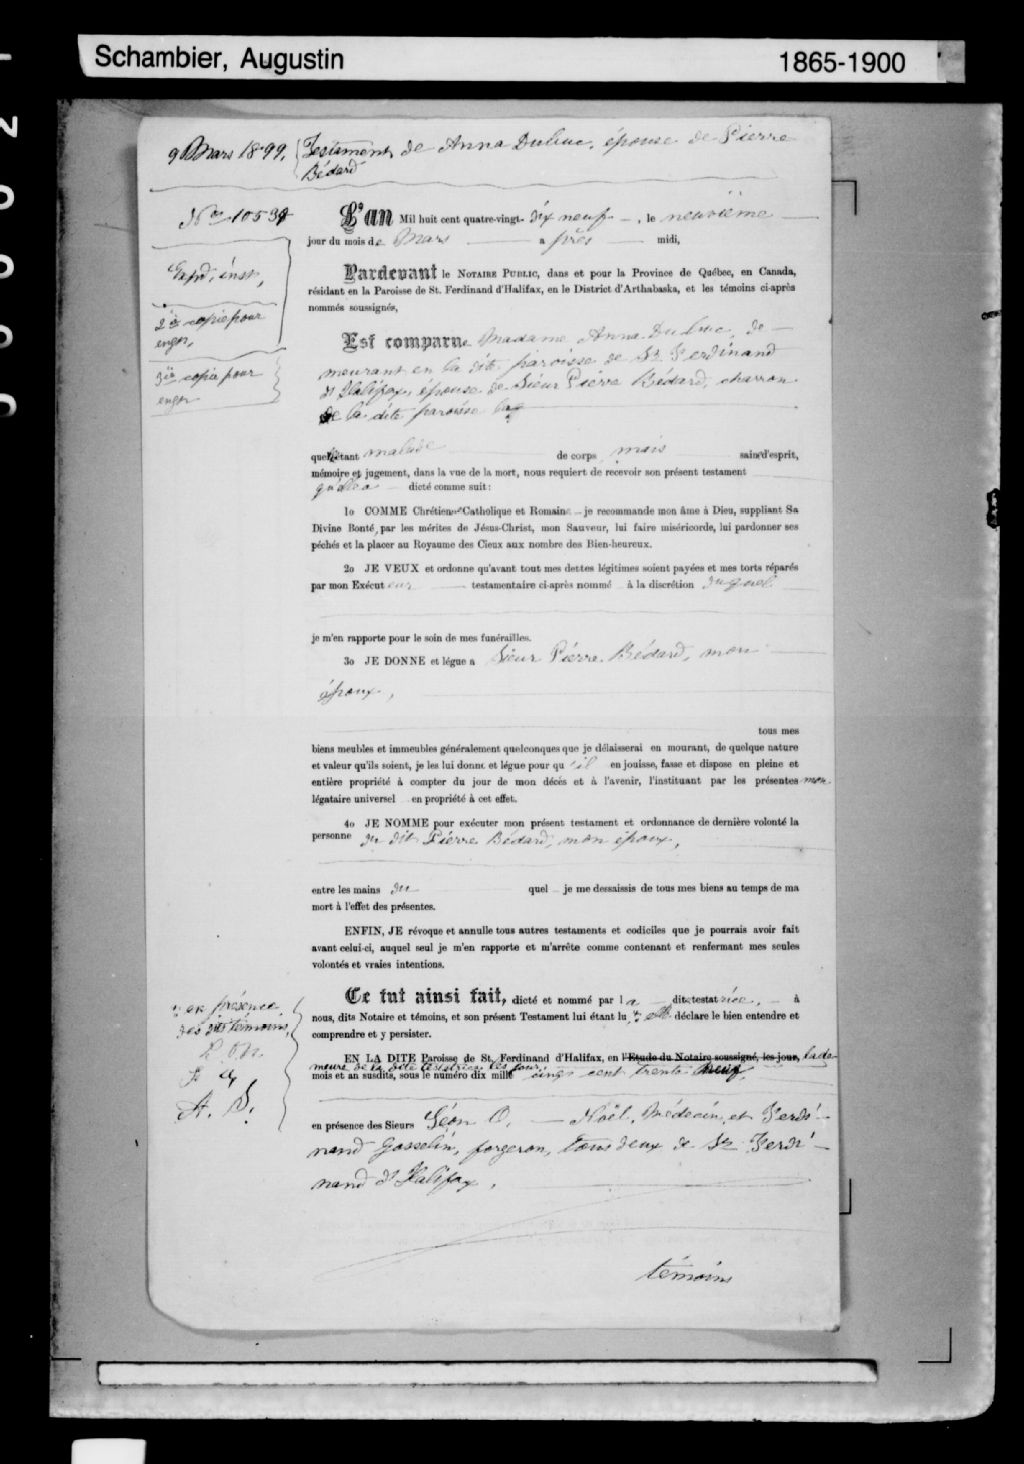 Schambier, Augustin
1865-1900
9 Mars 1899, Testament de Anna Dubuc, épouse de Pierre
Bédard
No 10539
Expd, inst,
2ie copie pour
engr,
3ie copie pour
engr
L'an Mil huit cent quatre-vingt- dix neuf, le neuvième
jour du mois de Mars a près midi,
Pardevant le NOTAIRE PUBLIC, dans et pour la Province de Québec, en Canada,
résidant en la Paroisse de St. Ferdinand d'Halifax, en le District d'Arthabaska, et les témoins ci-après
nommés soussignés,
Est comparue Madame Anna Dubuc, de-
meurant en la dite paroisse de St Ferdinand
d'Halifax, épouse de Sieur Pierre Bédard, charron
de la dite paroisse
quelle étant malade de corps mais saine d'esprit,
mémoire et jugement, dans la vue de la mort, nous requiert de recevoir son présent testament
qu'elle a dicté comme suit:
1o COMME Chrétienne Catholique et Romaine je recommande mon âme à Dieu, suppliant Sa
Divine Bonté, par les mérites de Jésus-Christ, mon Sauveur, lui faire miséricorde, lui pardonner ses
péchés et la placer au Royaume des Cieux aux nombre des Bien-heureux.
2o JE VEUX et ordonne qu'avant tout mes dettes légitimes soient payées et mes torts réparés
par mon Exécuteur testamentaire ci-après nommé à la discrétion duquel
je m'en rapporte pour le soin de mes funérailles.
3o JE DONNE et légue a Sieur Pierre Bédard, mon
époux,
tous mes
biens meubles et immeubles généralement quelconques que je délaisserai en mourant, de quelque nature
et valeur qu'ils soient, je les lui donne et légue pour qu'il en jouisse, fasse et dispose en pleine et
entière propriété à compter du jour de mon décés et à l'avenir, l'instituant par les présentes mon
légataire universel en propriété à cet effet.
4o JE NOMME pour exécuter mon présent testament et ordonnance de dernière volonté la
personne du dit Pierre Bédard, mon époux,
entre les mains du quel je me dessaissis de tous mes biens au temps de ma
mort à l'effet des présentes.
ENFIN, JE révoque et annulle tous autres testaments et codiciles que je pourrais avoir fait
avant celui-ci, auquel seul je m'en rapporte et m'arrête comme contenant et renfermant mes seules
volontés et vraies intentions.
Ce fut ainsi fait, dicté et nommé par la dite testatrice, à
nous, dits Notaire et témoins, et son présent Testament lui étant lu, elle déclare le bien entendre et
comprendre et y persister.
en présence
des dits témoins,
L. O. N.
F G
A. S.
EN LA DITE Paroisse de St. Ferdinand d'Halifax, en l'Etude du Notaire soussigné, les jour, la de-
meure de la dite testatrice les jour,
mois et an susdits, sous le numéro dix mille cinq cent trente neuf,
en présence des Sieurs Léon O. Noël, Médecin, et Ferdi-
nand Gosselin, forgeron, tous deux de St Ferdi-
nand d'Halifax,
témoins